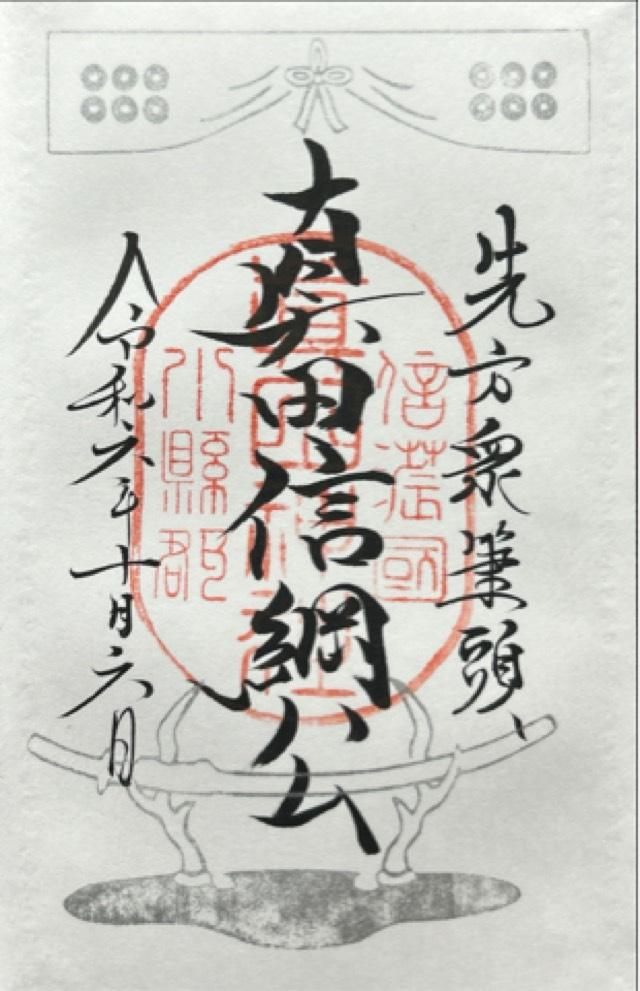 先方衆筆頭
真田信綱公
令和六年十月六日
信荿國
小縣郡